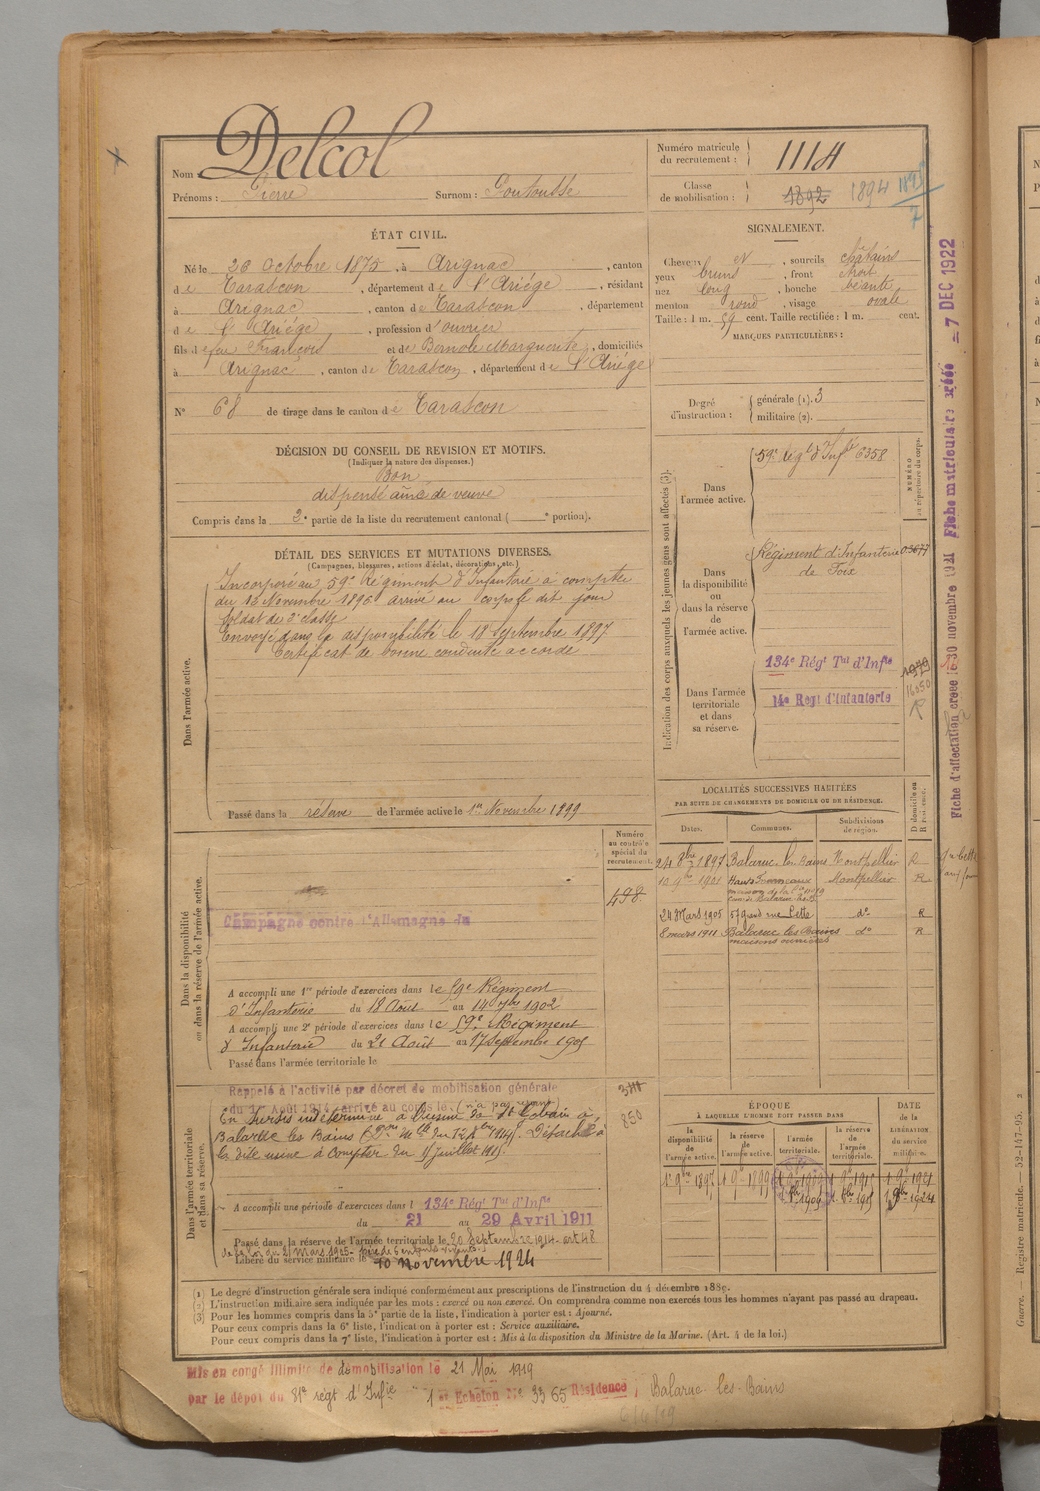 Nom : Delcol
Prénoms : Pierre Surnom : Goutousse
Numéro matricule du recrutement : 1114
Classe de mobilisation : 1892 1894 1895
ÉTAT CIVIL.
Né le 26 Octobre 1875, à Arignac, canton
de Tarascon, département de l'Ariége, résidant
à Arignac, canton de Tarascon, département
de l'Ariége, profession d'ouvrier
fils de feu François et de Bernole Marguerite, domiciliés
à Arignac, canton de Tarascon, département de l'Ariége
N° 68 de tirage dans le canton de Tarascon
SIGNALEMENT.
Cheveux et, sourcils châtains
yeux bruns, front étroit
nez long, bouche béante
menton rond, visage ovale
Taille : 1 m. 59 cent. Taille rectifiée : 1 m. cent.
MARQUES PARTICULIÈRES :
Degré d'instruction : générale (1). 3
militaire (2).
DÉCISION DU CONSEIL DE REVISION ET MOTIFS.
(Indiquer la nature des dispenses.)
Bon
dispensé ainé de veuve
Compris dans la 2e partie de la liste du recrutement cantonal ( e portion).
DÉTAIL DES SERVICES ET MUTATIONS DIVERSES.
(Campagnes, blessures, actions d'éclat, décorations, etc.)
Dans l'armée active.
Incorporé au 59e Régiment d'Infanterie à compter
du 16 Novembre 1896 arrivé au corps le dit jour
soldat de 2e classe
Envoyé dans la disponibilité le 18 Septembre 1897
Certificat de bonne conduite accordé
Passé dans la réserve de l'armée active le 1er Novembre 1899
Indication des corps auxquels les jeunes gens sont affectés (3).
NUMÉRO au répertoire du corps.
Dans l'armée active.
59e Régt d'Infie 6358
Dans la disponibilité ou dans la réserve de l'armée active.
Régiment d'Infanterie 03677
de Foix
Dans l'armée territoriale et dans sa réserve.
134e Régt Tal d'Infie
14e Regt d'Infanterie
16050
R
Fiche d'affectation creee le 30 novembre 1921 Fiche matriculaire créée - 7 DEC 1922
LOCALITÉS SUCCESSIVES HABITÉES
PAR SUITE DE CHANGEMENTS DE DOMICILE OU DE RÉSIDENCE.
Dates. Communes. Subdivisions de région. D domicile ou R résidence.
24 8bre 1897 Balaruc les Bains Montpellier R
10 9bre 1901 Montpellier R
24 Mars 1905 57 grand rue Cette do R
8 mars 1911 Balaruc les Bains do R
maisons ouvrières
Dans la disponibilité ou dans la réserve de l'armée active.
Numéro au contrôle spécial du recrutement.
498
Campagne contre l'Allemagne du
A accompli une 1re période d'exercices dans le 59e Régiment
d'Infanterie du 18 Août au 14 7bre 1902
A accompli une 2e période d'exercices dans le 59e Régiment
d'Infanterie du 21 Août au 17 Septembre 1905
Passé dans l'armée territoriale le
Dans l'armée territoriale et dans sa réserve.
850
Rappelé à l'activité par décret de mobilisation générale
du 1er Août 1914, arrivé au corps le
En Sursis indéterminé à l'usine de St Gobain à
Balaruc les Bains Détaché à
la dite usine à compter du 1er juillet
A accompli une période d'exercices dans l 134e Régt Tal d'Infie
du 21 au 29 Avril 1911
Passé dans la réserve de l'armée territoriale le 20 Septembre 1914 - art 48
de la loi du 21 mars 1905 - père de 6 enfants vivants.
Libéré du service militaire le 10 novembre 1924
ÉPOQUE
À LAQUELLE L'HOMME DOIT PASSER DANS
la disponibilité de l'armée active. la réserve de l'armée active. l'armée territoriale. la réserve de l'armée territoriale.
DATE de la LIBÉRATION du service militaire.
1er 9bre 1897 1 9re 1899 1 9re 1909 1 9re 1915 1 9re 1921
(1) Le degré d'instruction générale sera indiqué conformément aux prescriptions de l'instruction du 4 décembre 1889.
(2) L'instruction militaire sera indiquée par les mots : exercé ou non exercé. On comprendra comme non exercés tous les hommes n'ayant pas passé au drapeau.
(3) Pour les hommes compris dans la 5e partie de la liste, l'indication à porter est : Ajourné.
Pour ceux compris dans la 6e liste, l'indication à porter est : Service auxiliaire.
Pour ceux compris dans la 7e liste, l'indication à porter est : Mis à la disposition du Ministre de la Marine. (Art. 4 de la loi.)
Mis en congé illimité de démobilisation le 21 Mai 1919
par le dépôt du 81e régt d'Infie 1er Echelon No 3365 Résidence, Balaruc-les-Bains
6/6/19
Guerre. — Registre matricule. — 52-147-95.